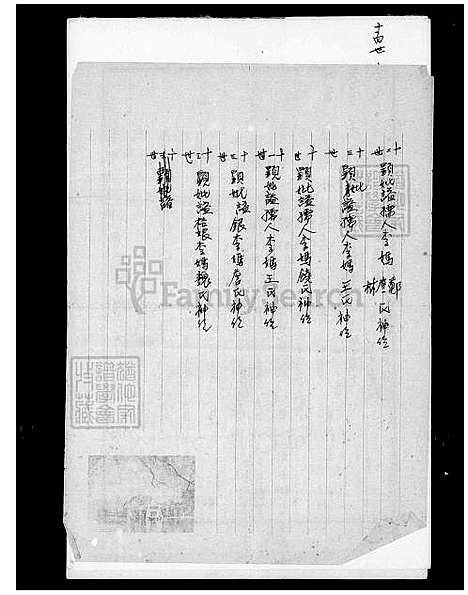 十四世
十二世 顯妣諡孺人李媽鄭詹林氏神位
十三世 顯妣諡孺人李媽王氏神位
十世 顯妣諡孺人李媽饒氏神位
十一世 顯妣諡孺人李媽王氏神位
十三世 顯妣諡銀李媽詹氏神位
十三世 顯妣諡李媽魏氏神位
十三世 顯妣諡
FamilySearch
譜學會
收藏